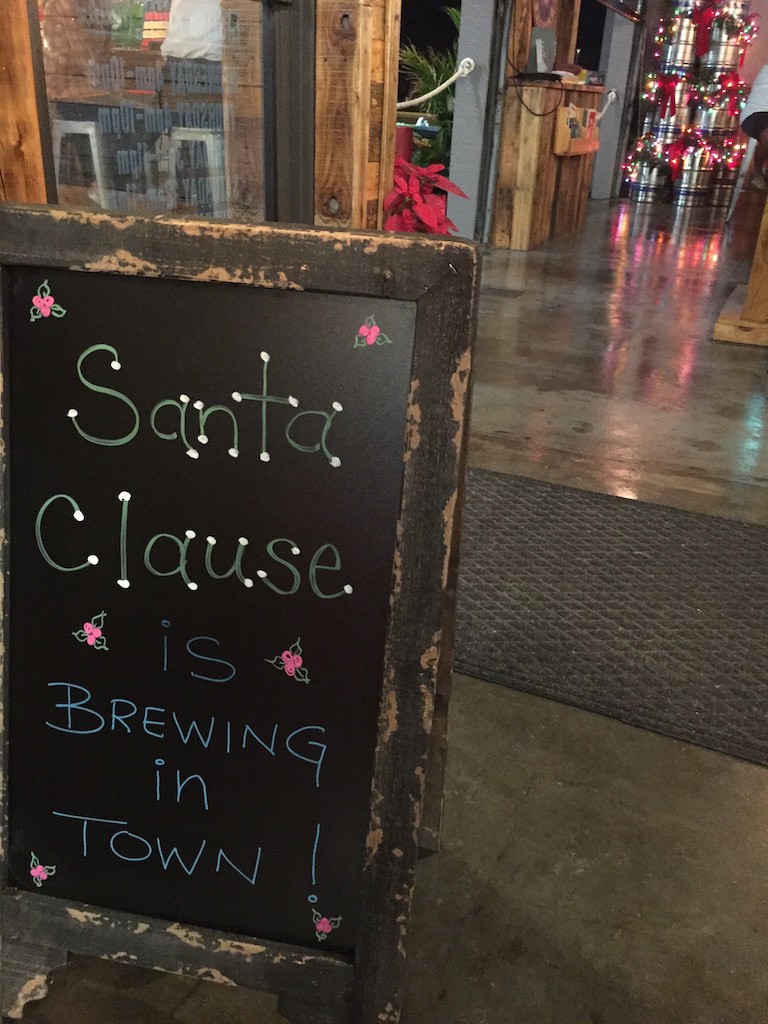 Santa
Clause
is
BREWING
in
TOWN !